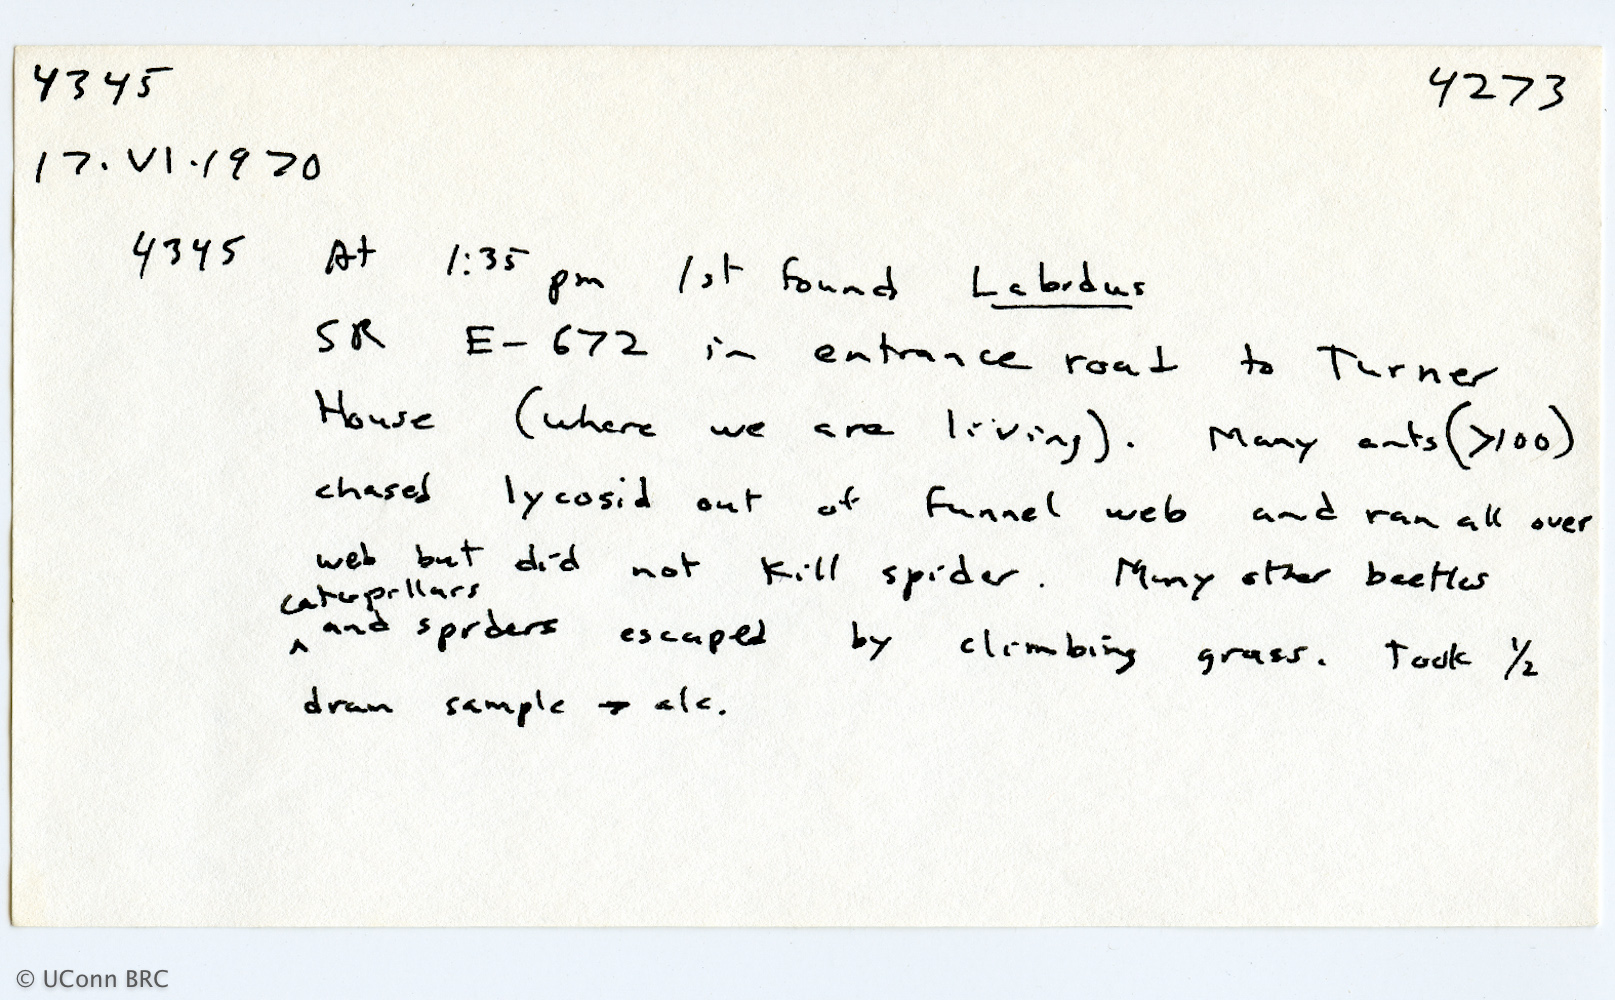 4345 4273
17.VI.1970
4345 At 1:35 pm 1st found Labidus
SR E-672 in entrance road to Turner
House (where we are living). Many ants (>100)
chased lycosid out of funnel web and ran all over
web but did not kill spider. Many other beetles
caterpillars
^ and spiders escaped by climbing grass. Took 1/2
dram sample → alc.
© UConn BRC